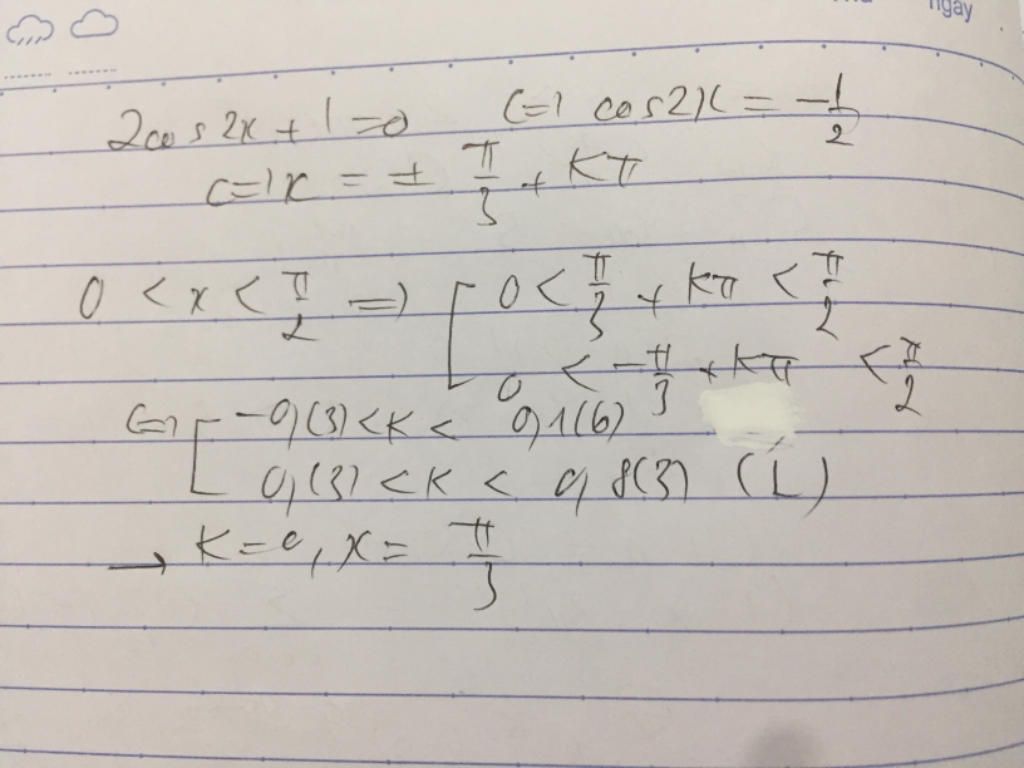 ngày
2cos2x + 1 = 0 <=> cos2x = -1/2
<=> x = ± π/3 + kπ
0 < x < π/2 => [ 0 < π/3 + kπ < π/2
0 < -π/3 + kπ < π/2
<=> [ -0,(3) < k < 0,1(6)
0,(3) < k < 0,8(3) (L)
→ k = 0, x = π/3